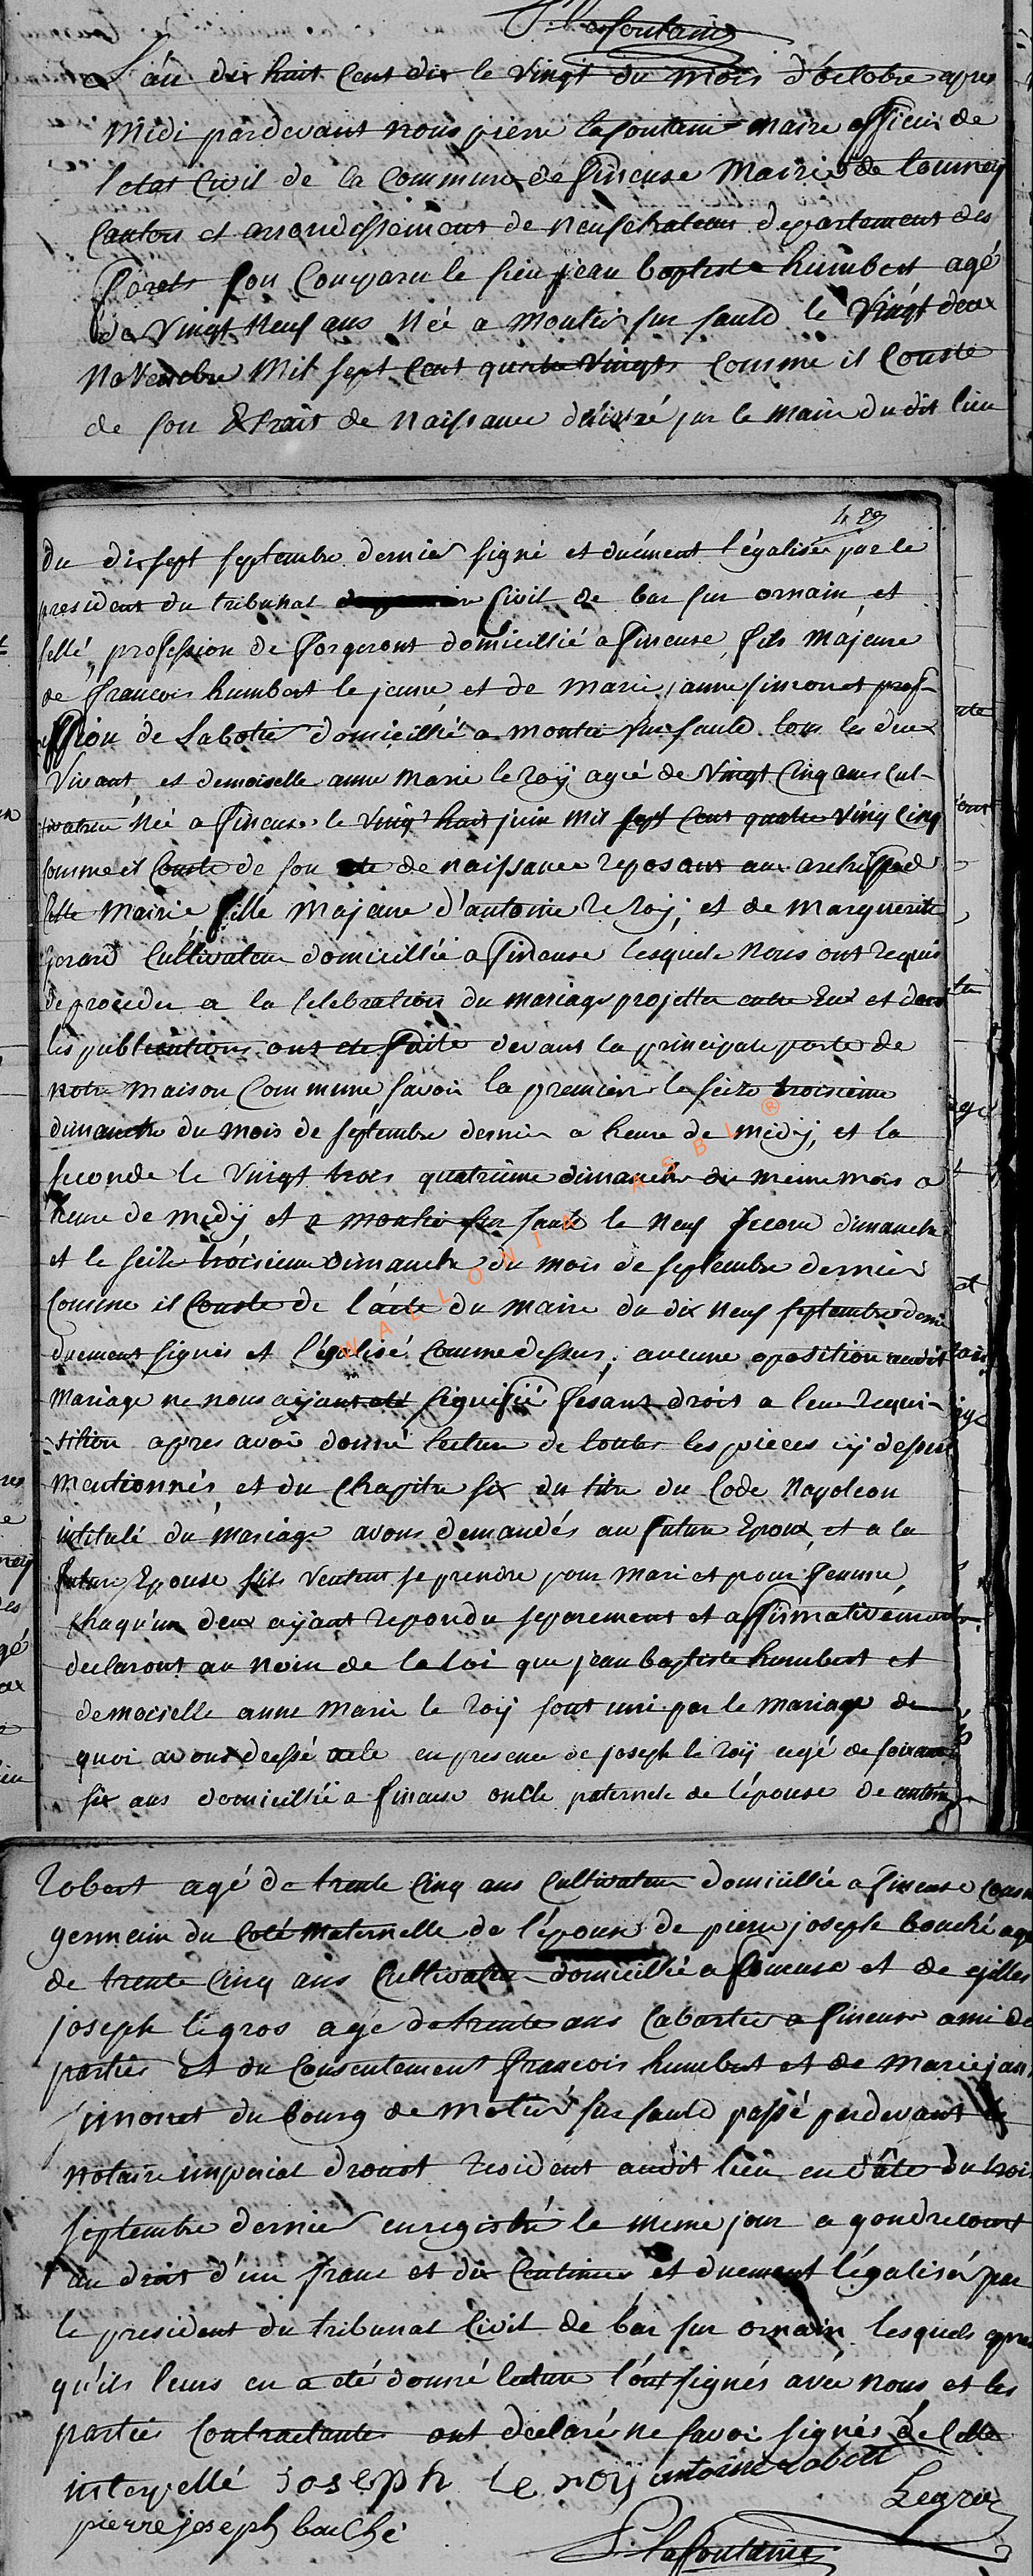 P. Lafontaine
L'an dix huit Cent dix le Vingt du mois d'octobre apres
Midi pardevant nous pierre lafontaine maire officier de
letat Civil de la Commune de fineuse Mairie de tournay
Canton et arrondissement de neufchateau departement des
forets son Comparu le sieu jean baptiste humbert agé
de Vingt Neuf ans Née a Montier sur sauld le Vingt deux
Novembre Mil sept Cent quatre Vingts Comme il Conste
de son Extrait de Naissance delivré par le maire du dit lieu
429
du dixsept septembre dernier signé et duément légalisée par le
president du tribunal Civil de bar sur ornain et
sellé, profession de forgeront domicillié a fineuse, fils majeure
de francois humbert le jeune et de marie janne simonet prof-
fession de Sabotié domicillié a montié sur sauld tous les deux
Vivant, et demoiselle anne marie le roÿ agée de Vingt Cinq ans Cul-
tivatrice Née a fineuse le Ving huit juin mil sept Cent quatre Ving Cinq
Comme il Conste de son acte de naissance reposant aux archives de
Cette Mairie fille Majeure d'antoine le roÿ, et de Marguerite
gerard Cultivateur domicillié a fineuse lesquels Nous ont requis
de proceder a la Celebration du mariage projetter entre Eux et dont
les publications ont ete faite devant la principale porte de
notre maison Commune savoir la premiere le seize troisieme
dimanche du mois de septembre dernier a heure de midÿ, et la
seconde le Vingt trois quatrieme dimanche du meme mois a
heure de midÿ et a montier sur sauld le Neuf second dimanche
et le seize troisieme dimanche du mois de septembre dernier
Comme il Conste de l'acte du maire du dix neuf septembre dernie
duement signés et légalisé Comme dessus, aucune oposition audit
Mariage ne nous aÿant eté signifié fesant droit a leur requi-
sition apres avoir donné lecture de toutes les pieces cÿ dessus
mentionnés, et du Chapitre six du titre du Code Napoleon
intitulé du mariage avons demandés au futur Epoux et a la
future Epouse sils Veulent se prendre pour mari et pour femme,
Chaqu'un deux aÿant repondu separement et affirmativement
declaront au nom de la loi que jean baptiste humbert et
demoiselle anne marie le roÿ sont uni par le mariage de
quoi avons dressé acte en presence de joseph le roÿ agé de soixante
six ans domicillié a fineuse oncle paternele de lépouse de antoine
robert agé de trente Cinq ans Cultivateur domicillié a fineuse Cousin
germain du Coté Maternelle de l'épouse de pierre joseph bouché agé
de trente Cinq ans Cultivateur domicillié a fineuse et de gilles
joseph legros agé de trente ans Cabartier a fineuse ami de
parties et du Consentement francois humbert et de marie jan
simonet du bourg de motier sur sauld passé pardevant le
notaire imperial drouot resident audit lieu en date du troi
septembre dernier enregistré le meme jour a gondrecourt
au droit d'un franc et dix Centimes et duement légalisé par
le president du tribunal Civil de bar sur ornain lesquels apres
qu'ils leurs en a été donné lecture l'ont signés avec nous et les
parties Contractantes ont declarés ne savoir signés de Celle
interpellé joseph le roÿ antoine robert
Legros
pierre joseph bouché
P. lafontaine
WALLONIA ASBL ®